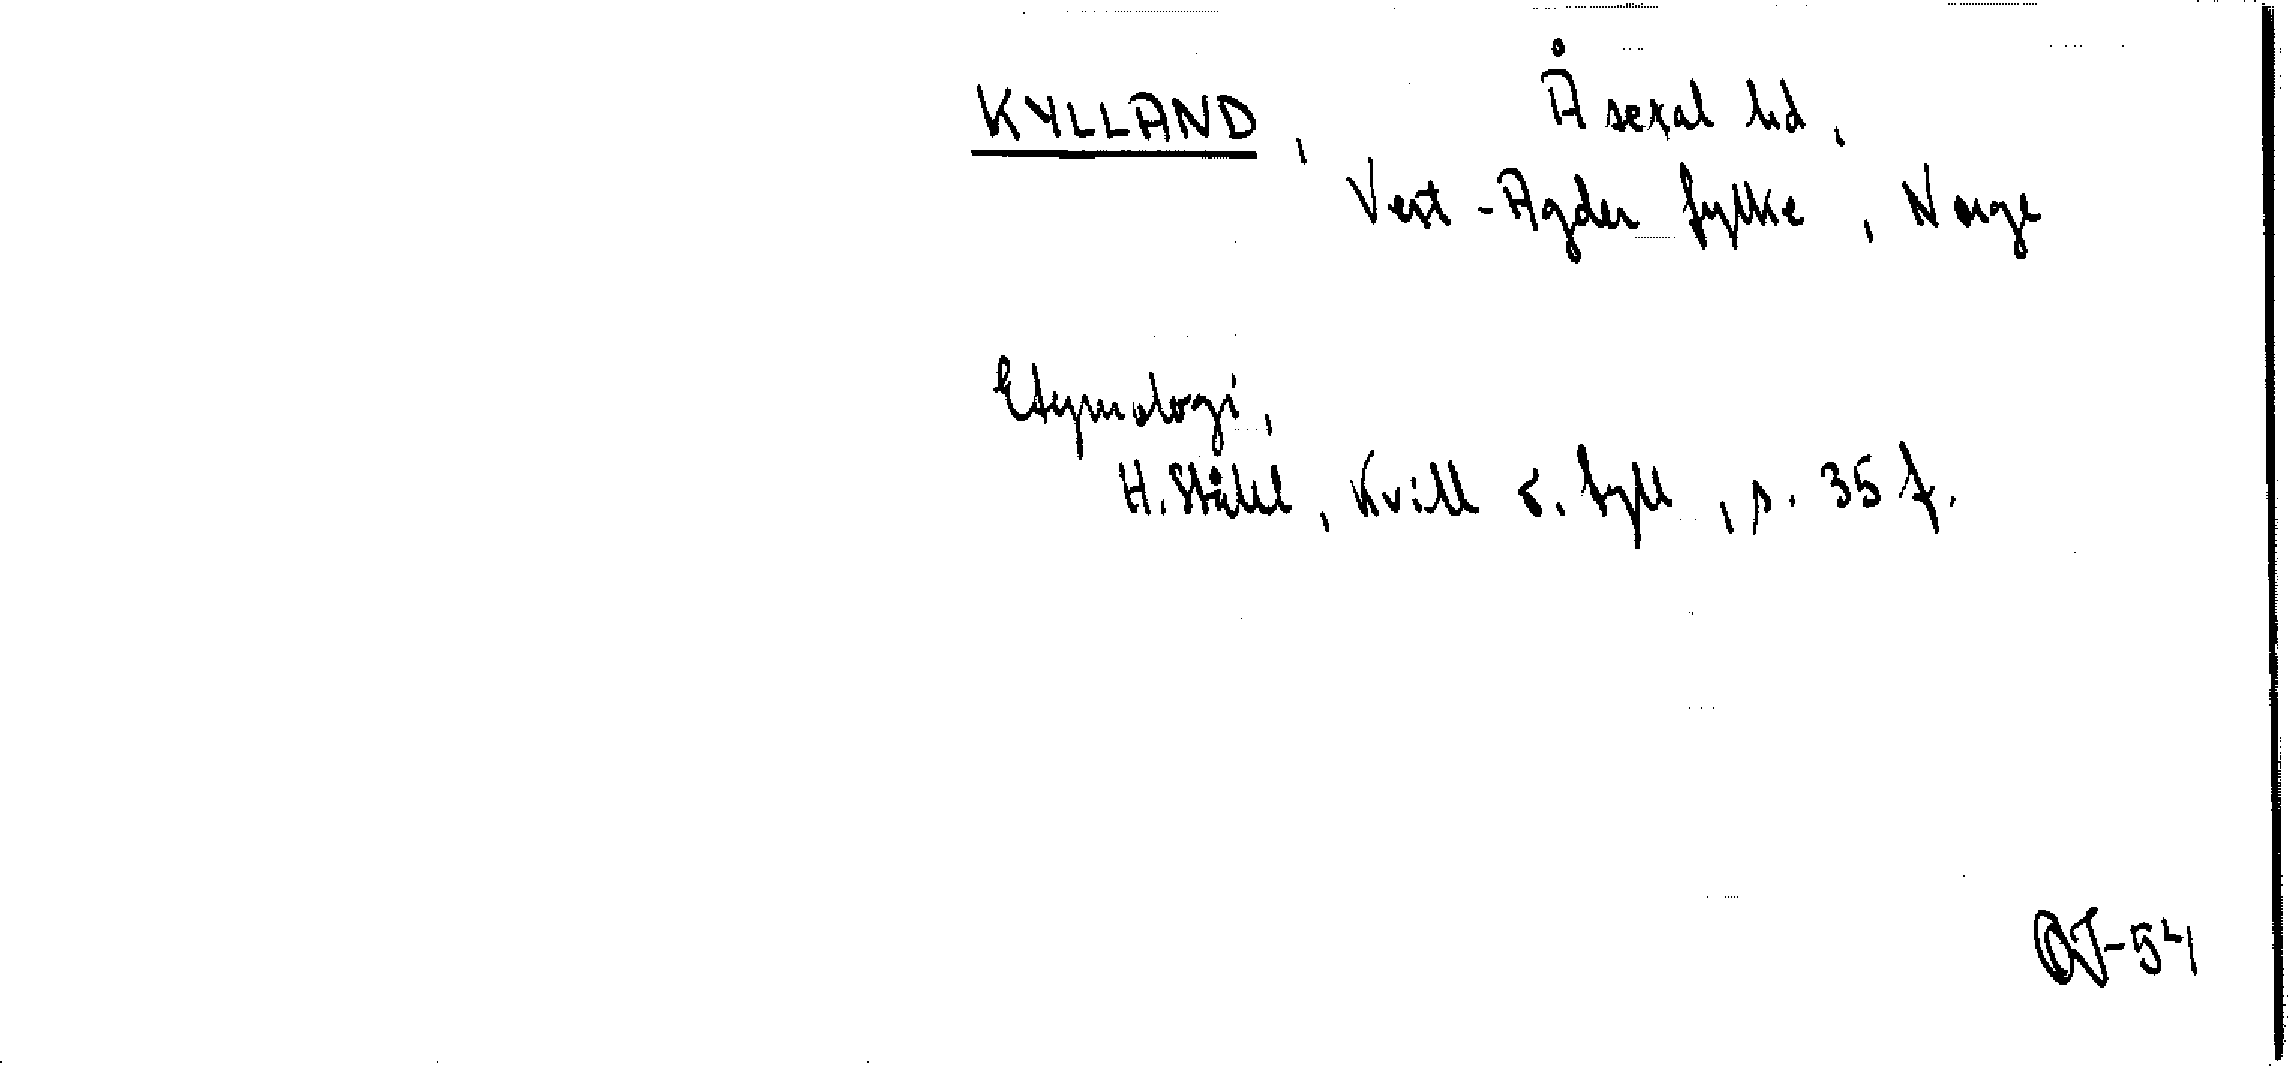 KYLLAND, Åseral hd,
Vest-Agder fylke, Norge
Etymologi,
H. Ståhl, Kvill o. tyll, s. 35 f.